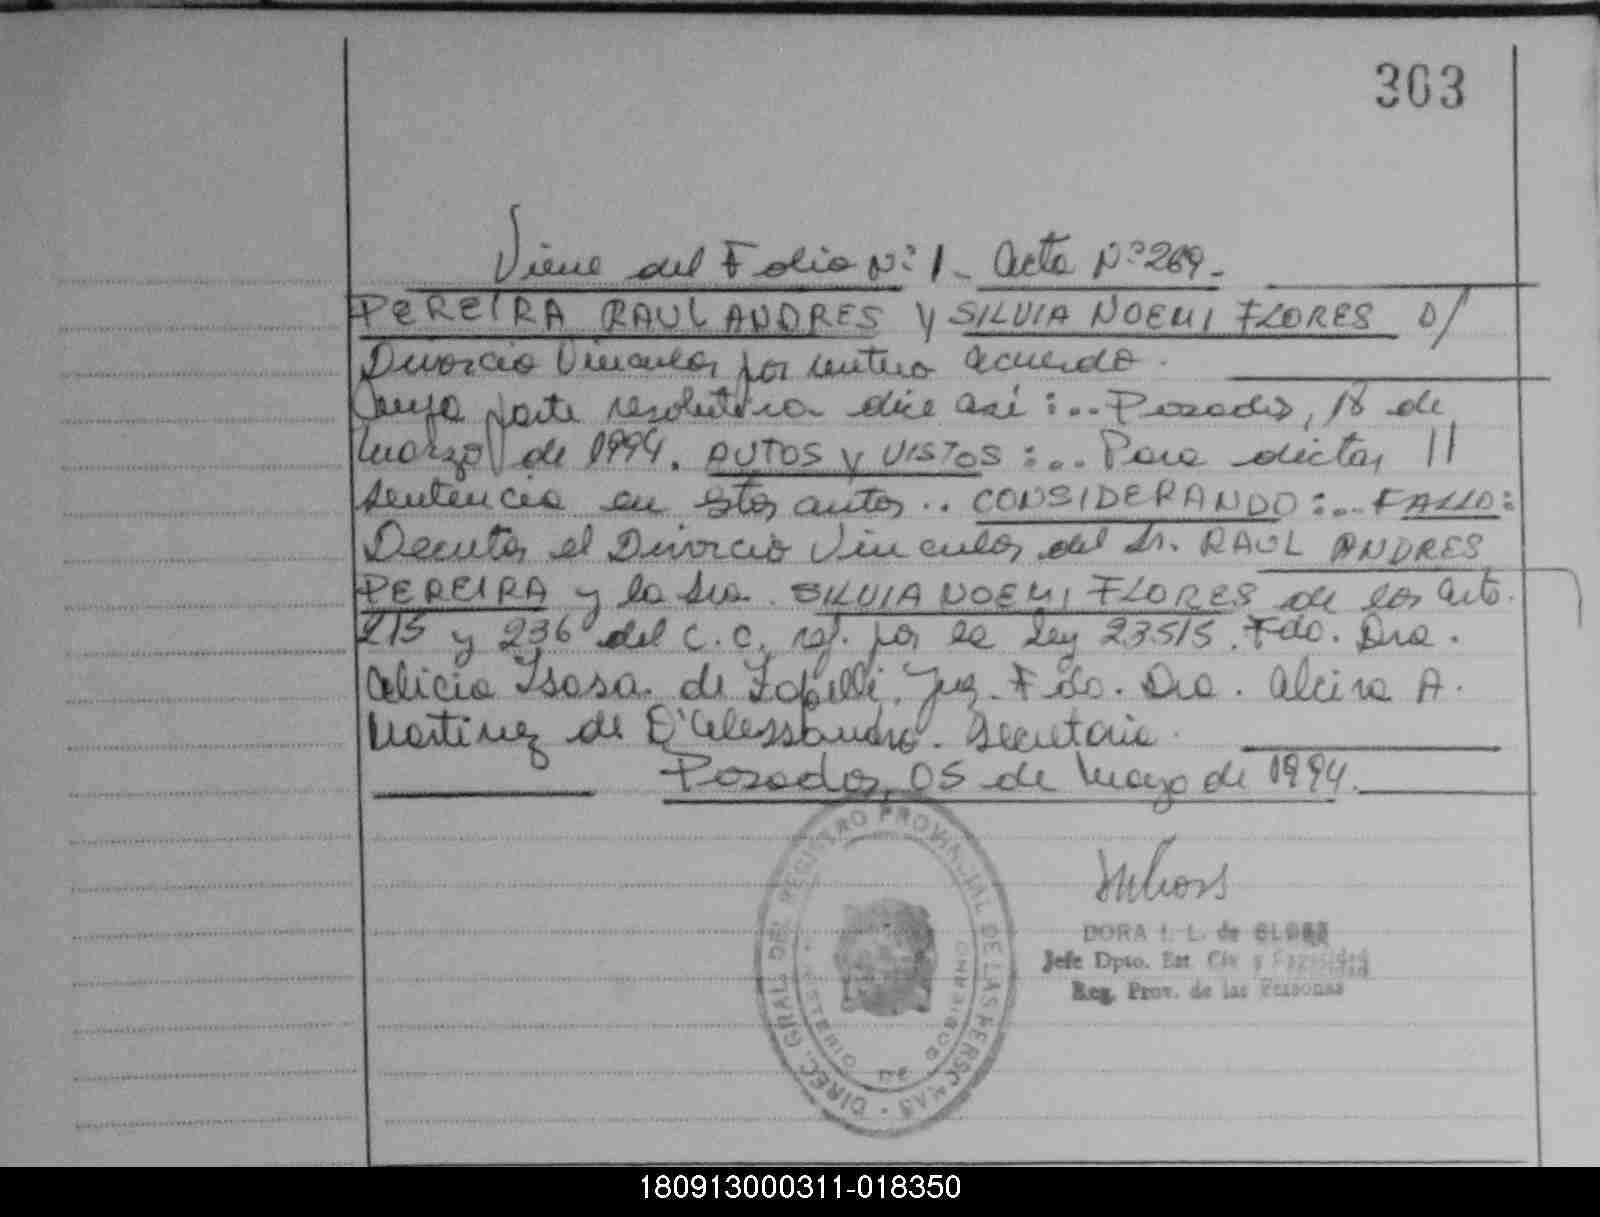 303
Viene del Folio Nº 1 - Acta Nº 269 -
PEREIRA RAUL ANDRES y SILVIA NOEMI FLORES S/
Divorcio Vincular por mutuo acuerdo.
Cuya parte resolutiva dice así:... Posadas, 18 de
marzo de 1994. AUTOS y VISTOS:... Para dictar //
sentencia en estos autos.. CONSIDERANDO:... FALLO:
Decretar el Divorcio Vincular del Sr. RAUL ANDRES
PEREIRA y la Sra. SILVIA NOEMI FLORES de los arts.
215 y 236 del C.C. ref. por la Ley 23515. Fdo. Dra.
Alicia Isasa. de Juez. Fdo. Dra. Alcira A.
Martinez de D'Alessandro. Secretaria.
Posadas, 05 de Mayo de 1994.
DIREC. GRAL. DEL REGISTRO PROVINCIAL DE LAS PERSONAS
MINISTERIO DE GOBIERNO
DORA I. L. de
Jefe Dpto. Est. Civ y Capacidad
Reg. Prov. de las Personas
180913000311-018350